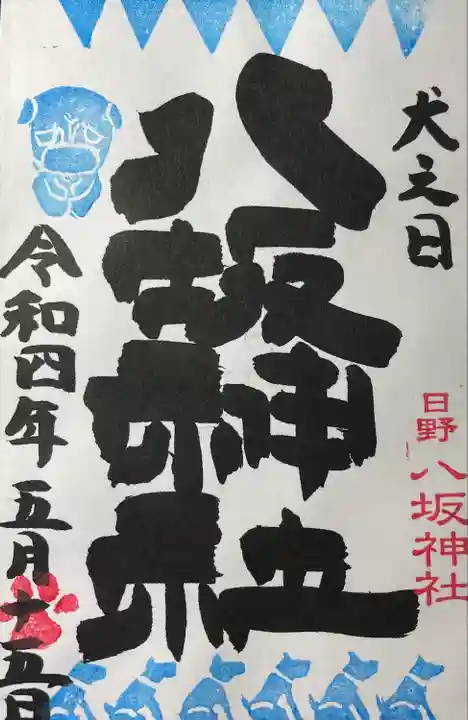 犬之日
日野八坂神社
八坂神社
令和四年五月十五日